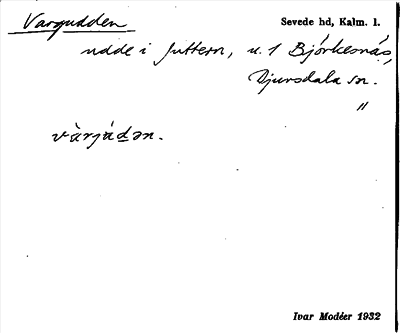 Vargudden
Sevede hd, Kalm. l.
udde i Juttern, u. 1 Björkesnäs,
Djursdala sn.
"
vàrjádən.
Ivar Modéer 1932